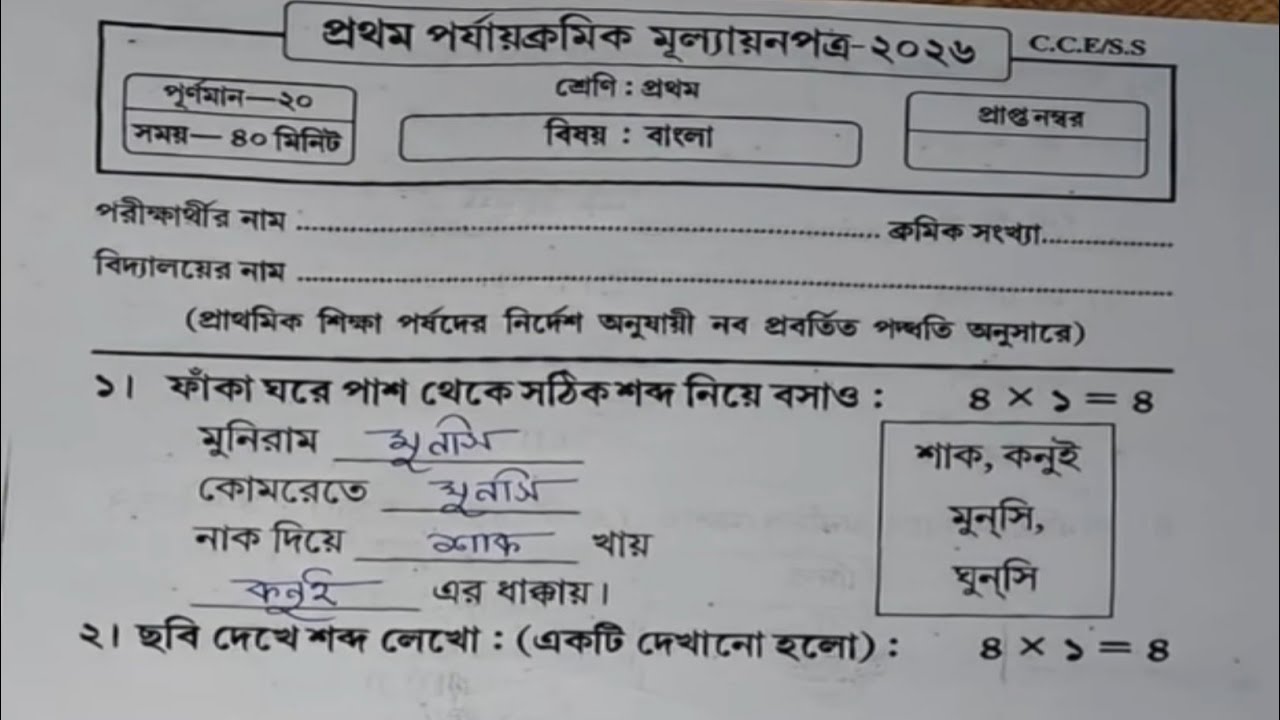 প্রথম পর্যায়ক্রমিক মূল্যায়নপত্র-২০২৬
C.C.E/S.S
পূর্ণমান—২০
শ্রেণি : প্রথম
প্রাপ্ত নম্বর
সময়— ৪০ মিনিট
বিষয় : বাংলা
পরীক্ষার্থীর নাম ........................ ক্রমিক সংখ্যা..................
বিদ্যালয়ের নাম ........................
(প্রাথমিক শিক্ষা পর্ষদের নির্দেশ অনুযায়ী নব প্রবর্তিত পদ্ধতি অনুসারে)
১। ফাঁকা ঘরে পাশ থেকে সঠিক শব্দ নিয়ে বসাও : ৪ × ১ = ৪
মুনিরাম মুনসি
কোমরেতে ঘুনসি
নাক দিয়ে শাক খায়
কনুই এর ধাক্কায়।
শাক, কনুই
মুন্‌সি,
ঘুন্‌সি
২। ছবি দেখে শব্দ লেখো : (একটি দেখানো হলো) : ৪ × ১ = ৪